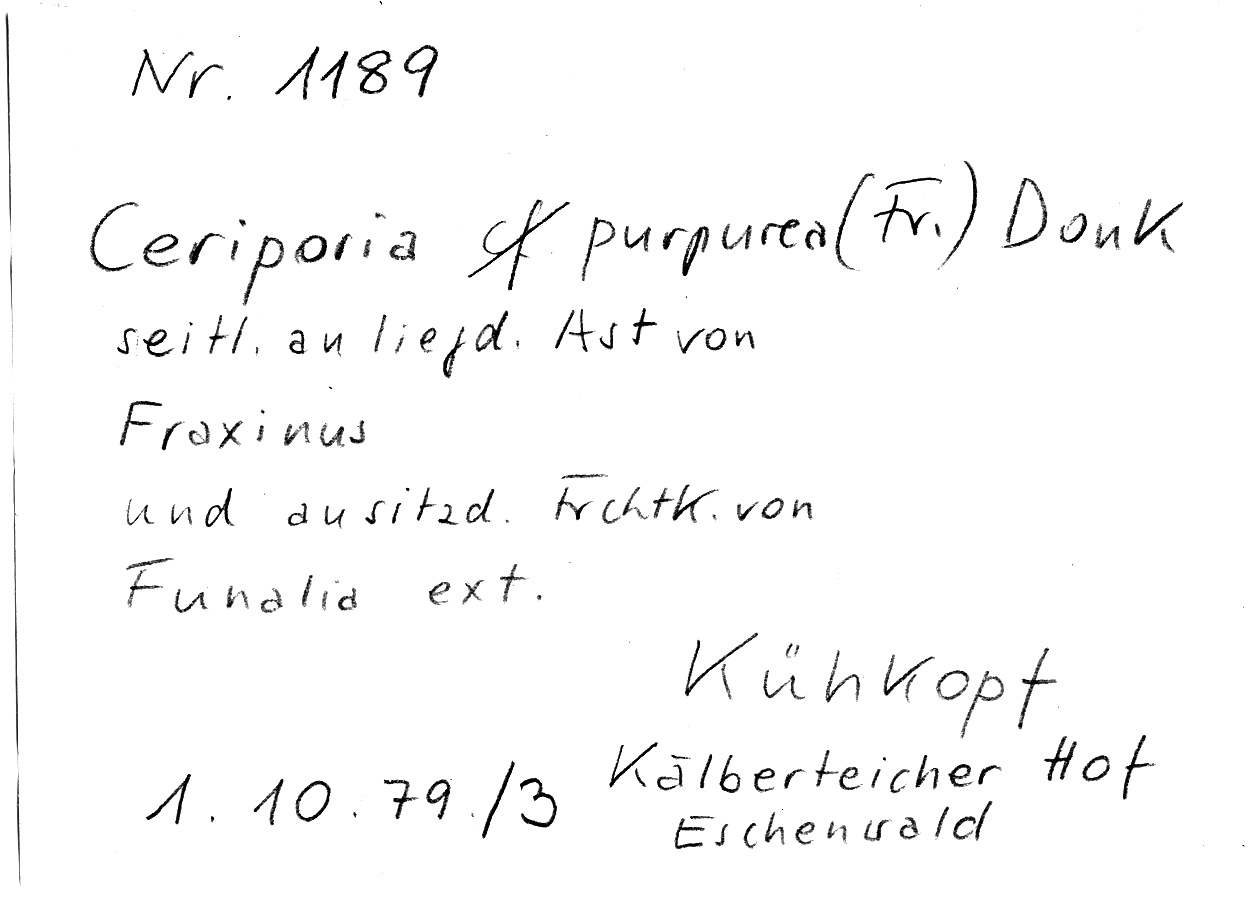 Nr. 1189
Ceriporia cf purpurea (Fr.) Donk
seitl. an liegd. Ast von
Fraxinus
und ansitzd. Frchtk. von
Funalia ext.
Kühkopf
Kälberteicher Hof
1.10.79./3
Eschenwald